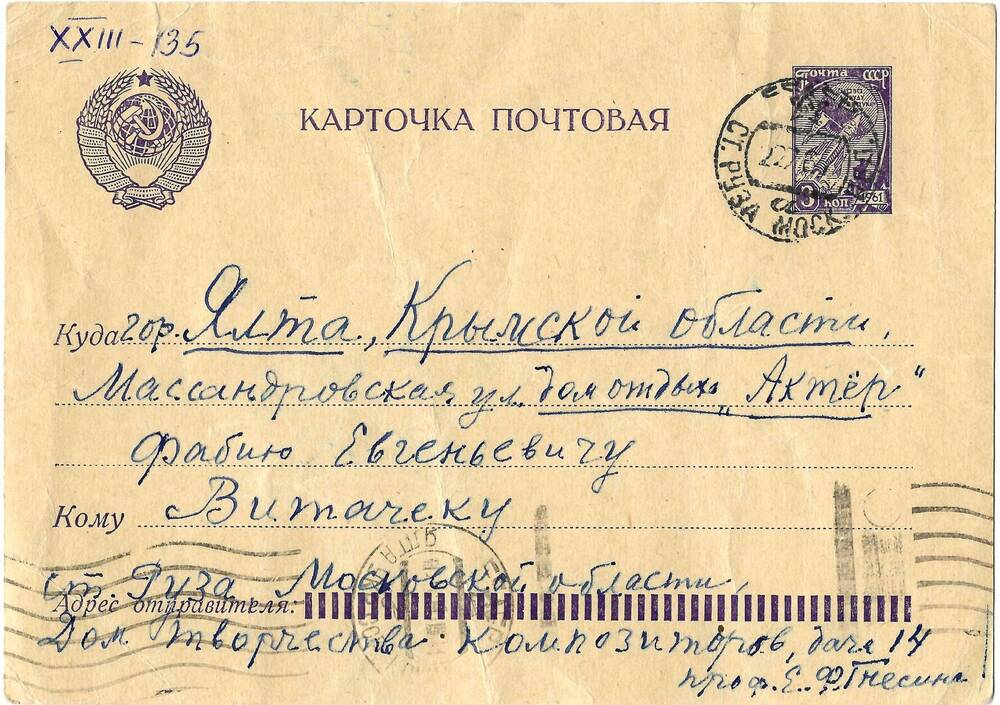 XXIII-135
КАРТОЧКА ПОЧТОВАЯ
ПОЧТА СССР
3 КОП. 1961
СТ. РУЗА МОСК.
Куда гор. Ялта, Крымской области,
Массандровская ул. дом отдыха „Актёр“
Фабию Евгеньевичу
Кому Витачеку
ст. Руза Московской области,
Адрес отправителя:
Дом творчества композиторов, дача 14
проф. Е. Ф. Гнесина
ЯЛТА